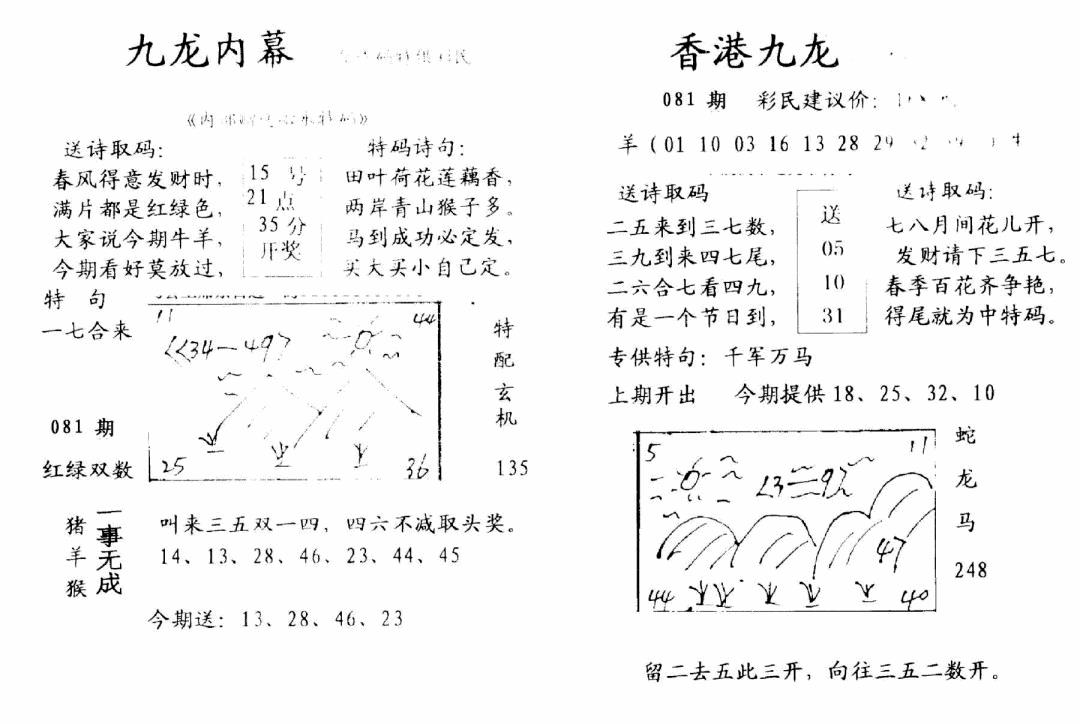 九龙内幕
送诗取码：
春风得意发财时，
满片都是红绿色，
大家说今期牛羊，
今期看好莫放过，
15 号
21 点
35 分
开奖
特码诗句：
田叶荷花莲藕香，
两岸青山猴子多。
马到成功必定发，
买大买小自己定。
特 句
一七合来
081 期
红绿双数
11
44
34—49
25
36
特
配
玄
机
135
猪
羊
猴
一事无成
叫来三五双一四，四六不减取头奖。
14、13、28、46、23、44、45
今期送：13、28、46、23
香港九龙
081 期 彩民建议价：
羊（01 10 03 16 13 28 29
送诗取码
二五来到三七数，
三九到来四七尾，
二六合七看四九，
有是一个节日到，
送
05
10
31
送诗取码：
七八月间花儿开，
发财请下三五七。
春季百花齐争艳，
得尾就为中特码。
专供特句：千军万马
上期开出 今期提供 18、25、32、10
5
11
47
44
40
蛇
龙
马
248
留二去五此三开，向往三五二数开。